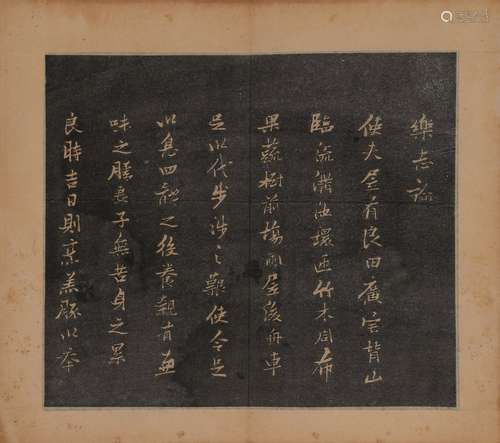 樂志論
使大居有良田廣宅背山
臨流溝池環匝竹木周布
果蔬樹前場圃居後舟車
足以代步涉之難使令足
以息四體之役養親有兼
味之膳妻子無苦身之累
良時吉日則烹羔豚以奉